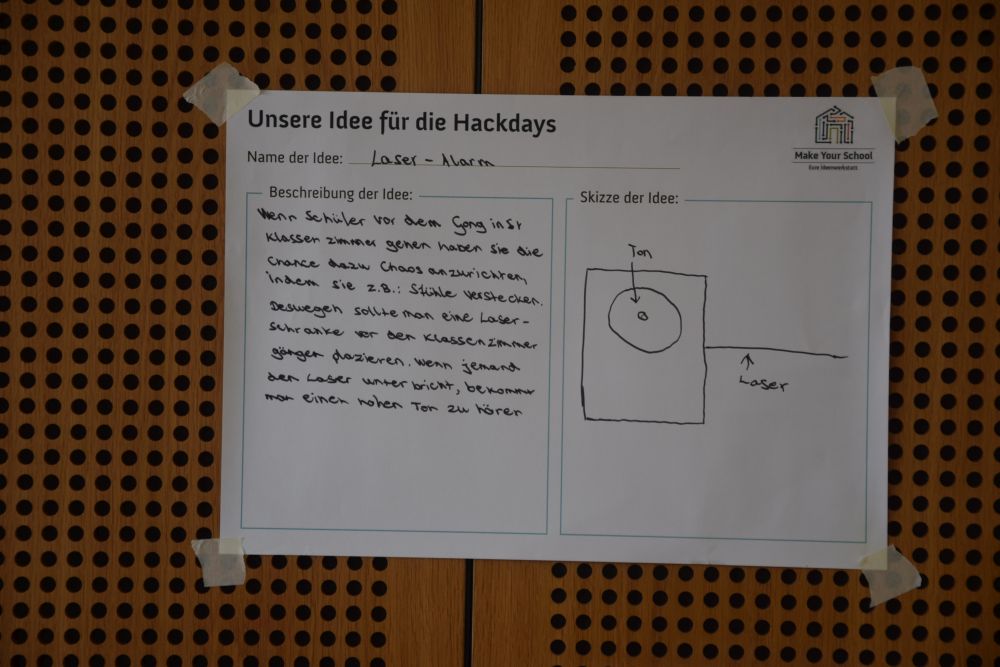 Unsere Idee für die Hackdays
Name der Idee: Laser-Alarm
Make Your School
Eure Ideenwerkstatt
Beschreibung der Idee:
Wenn Schüler vor dem Gong ins
Klassenzimmer gehen haben sie die
Chance dazu Chaos anzurichten,
indem sie z.B.: Stühle verstecken.
Deswegen sollte man eine Laser-
schranke vor den Klassenzimmer
gängen plazieren. Wenn jemand
den Laser unterbricht, bekommt
man einen hohen Ton zu hören
Skizze der Idee:
Ton
Laser